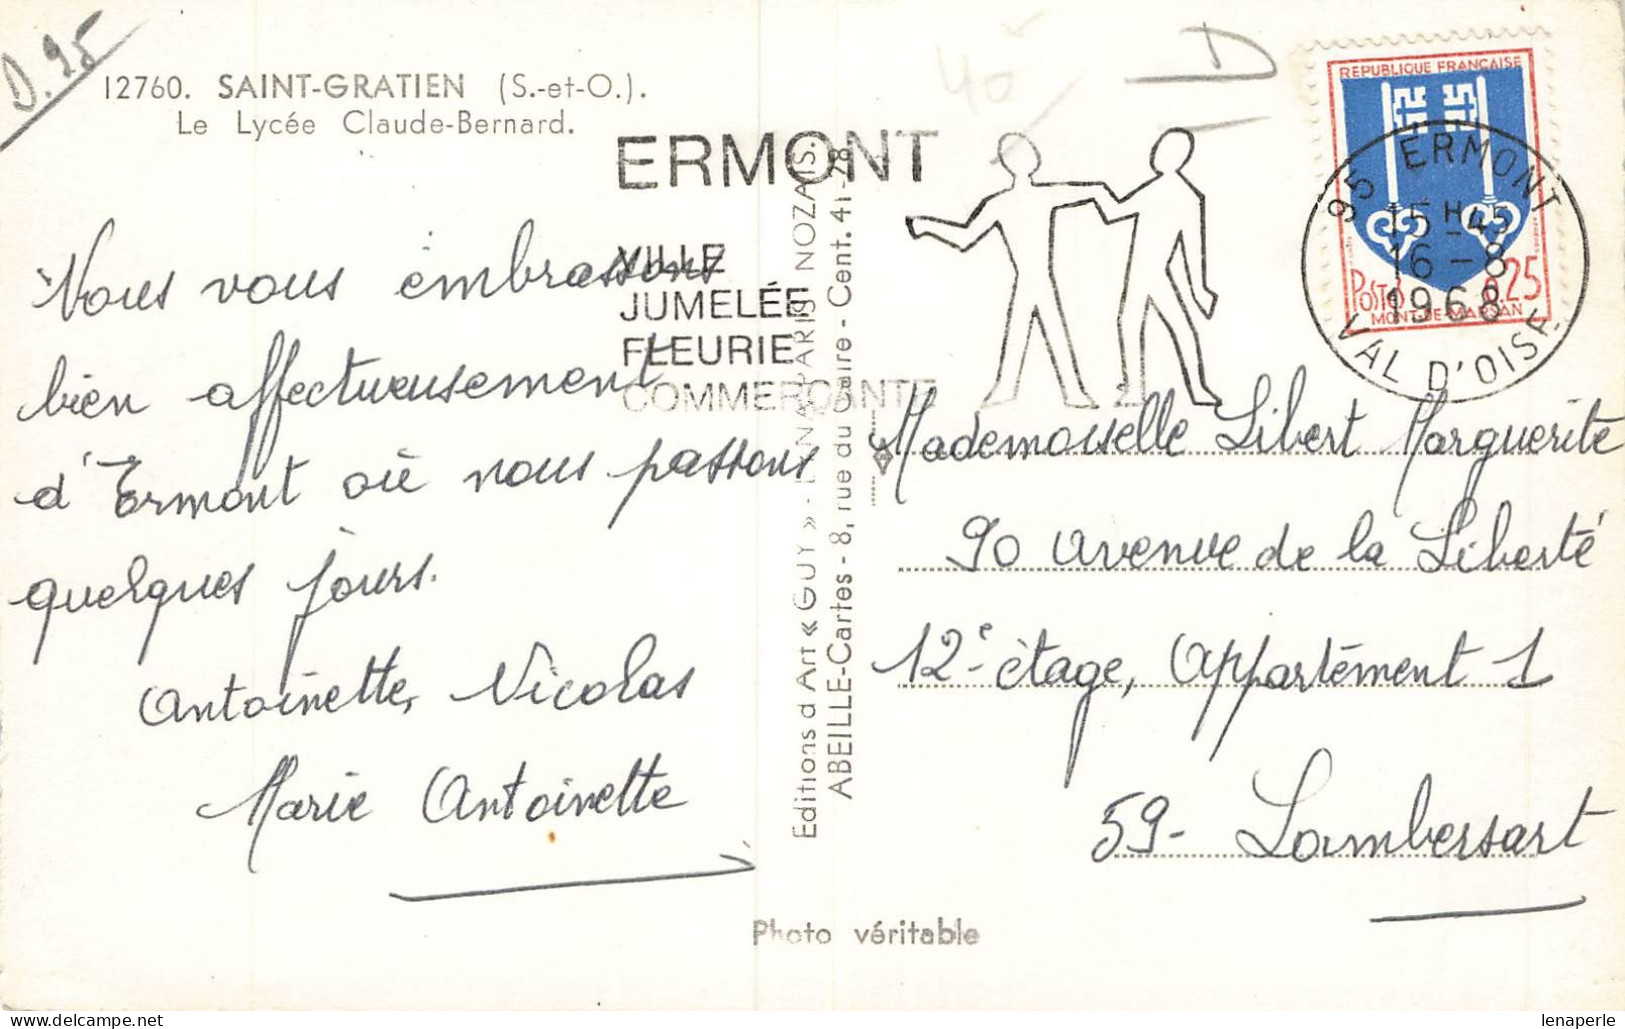 D. 95
12760. SAINT-GRATIEN (S.-et-O.).
Le Lycée Claude-Bernard.
40
D
ERMONT
VILLE
JUMELÉE
FLEURIE
COMMERÇANTE
REPUBLIQUE FRANÇAISE
POSTES 0.25
MONT-DE-MARSAN
95 ERMONT
15 H 45
16 - 8
1968
VAL D'OISE
Nous vous embrassons
bien affectueusement
d'Ermont où nous passons
quelques jours.
Antoinette, Nicolas
Marie Antoinette
Editions d'Art « GUY » - PARIS NOZAIS.
ABEILLE-Cartes - 8, rue du Caire - Cent. 41-78
Mademoiselle Libert Marguerite
90 avenue de la Liberté
12e étage, Appartément 1
59 - Lambersart
Photo véritable
lenaperle